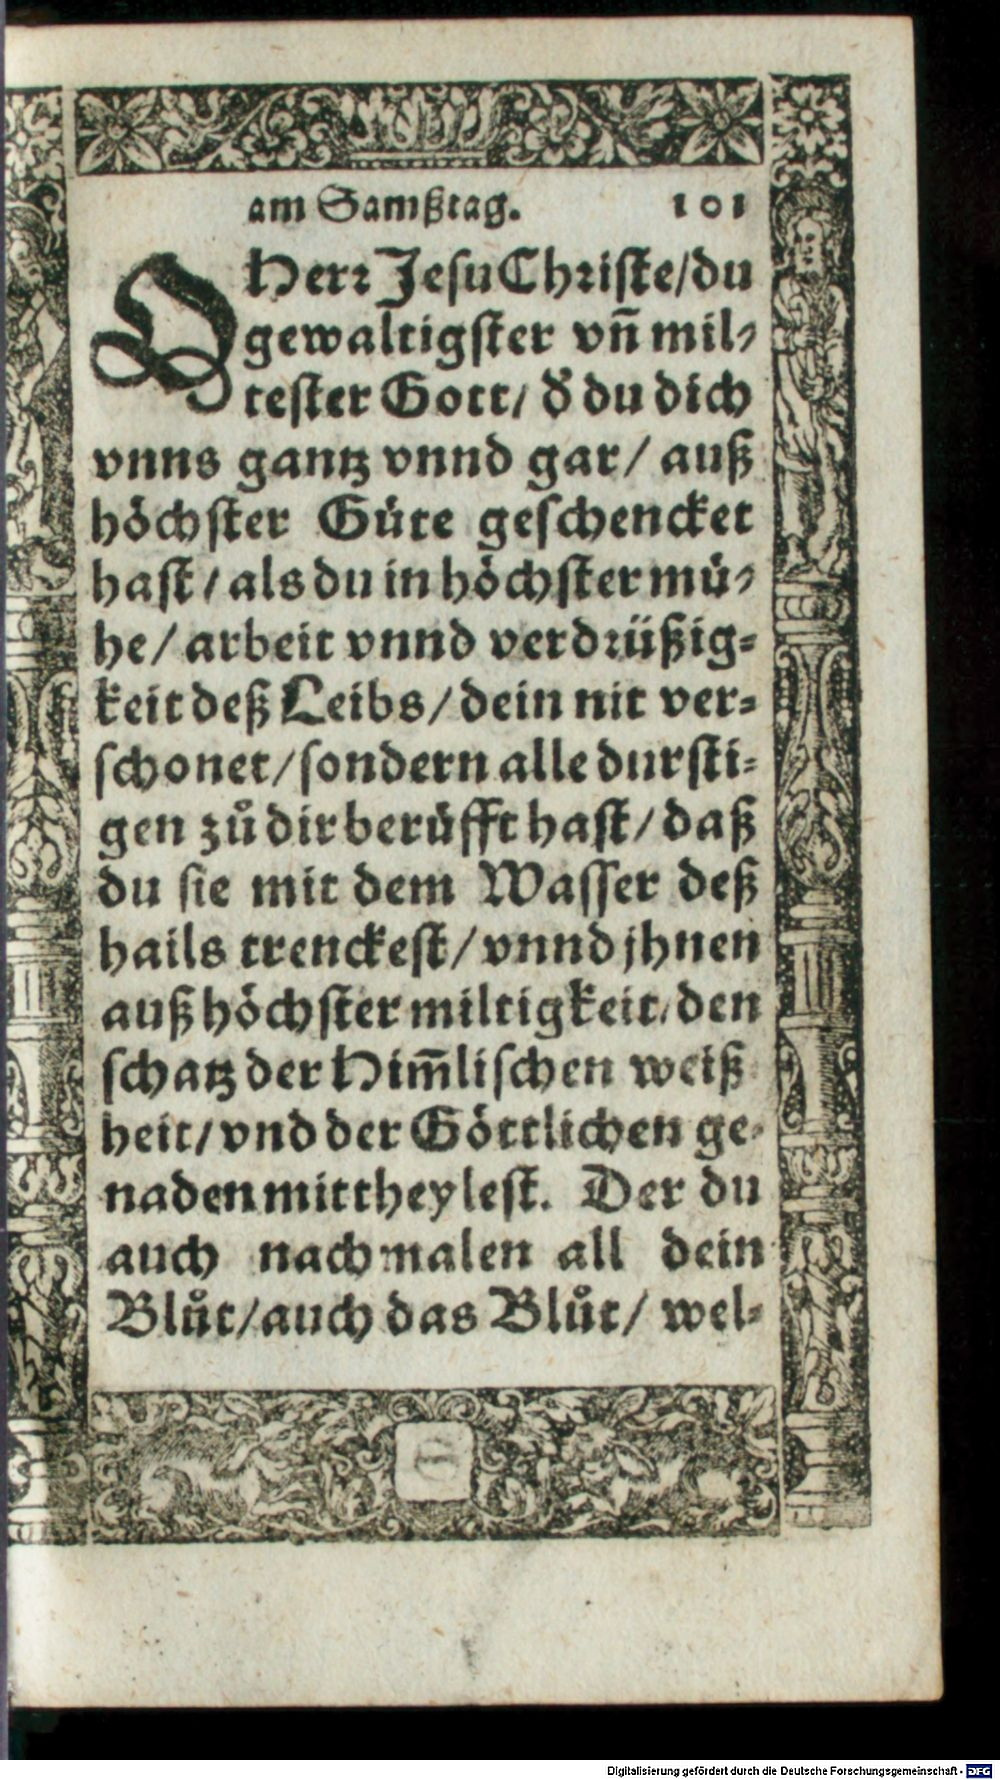 am Samßtag. 101
O Herr Jesu Christe/du
gewaltigster vn̄ mil⸗
tester Gott/ d̓ du dich
vnns gantz vnnd gar/ auß
höchster Güte geschencket
hast/ als du in höchster mü⸗
he/ arbeit vnnd verdrüßig⸗
keit deß Leibs/ dein nit ver⸗
schonet/ sondern alle dursti⸗
gen zů dir berüfft hast/ daß
du sie mit dem Wasser deß
hails trenckest/ vnnd jhnen
auß höchster miltigkeit/ den
schatz der Him̄lischen weiß
heit/ vnd der Göttlichen ge⸗
naden mittheylest. Der du
auch nachmalen all dein
Blůt/ auch das Blůt/ wel⸗
Digitalisierung gefördert durch die Deutsche Forschungsgemeinschaft - DFG